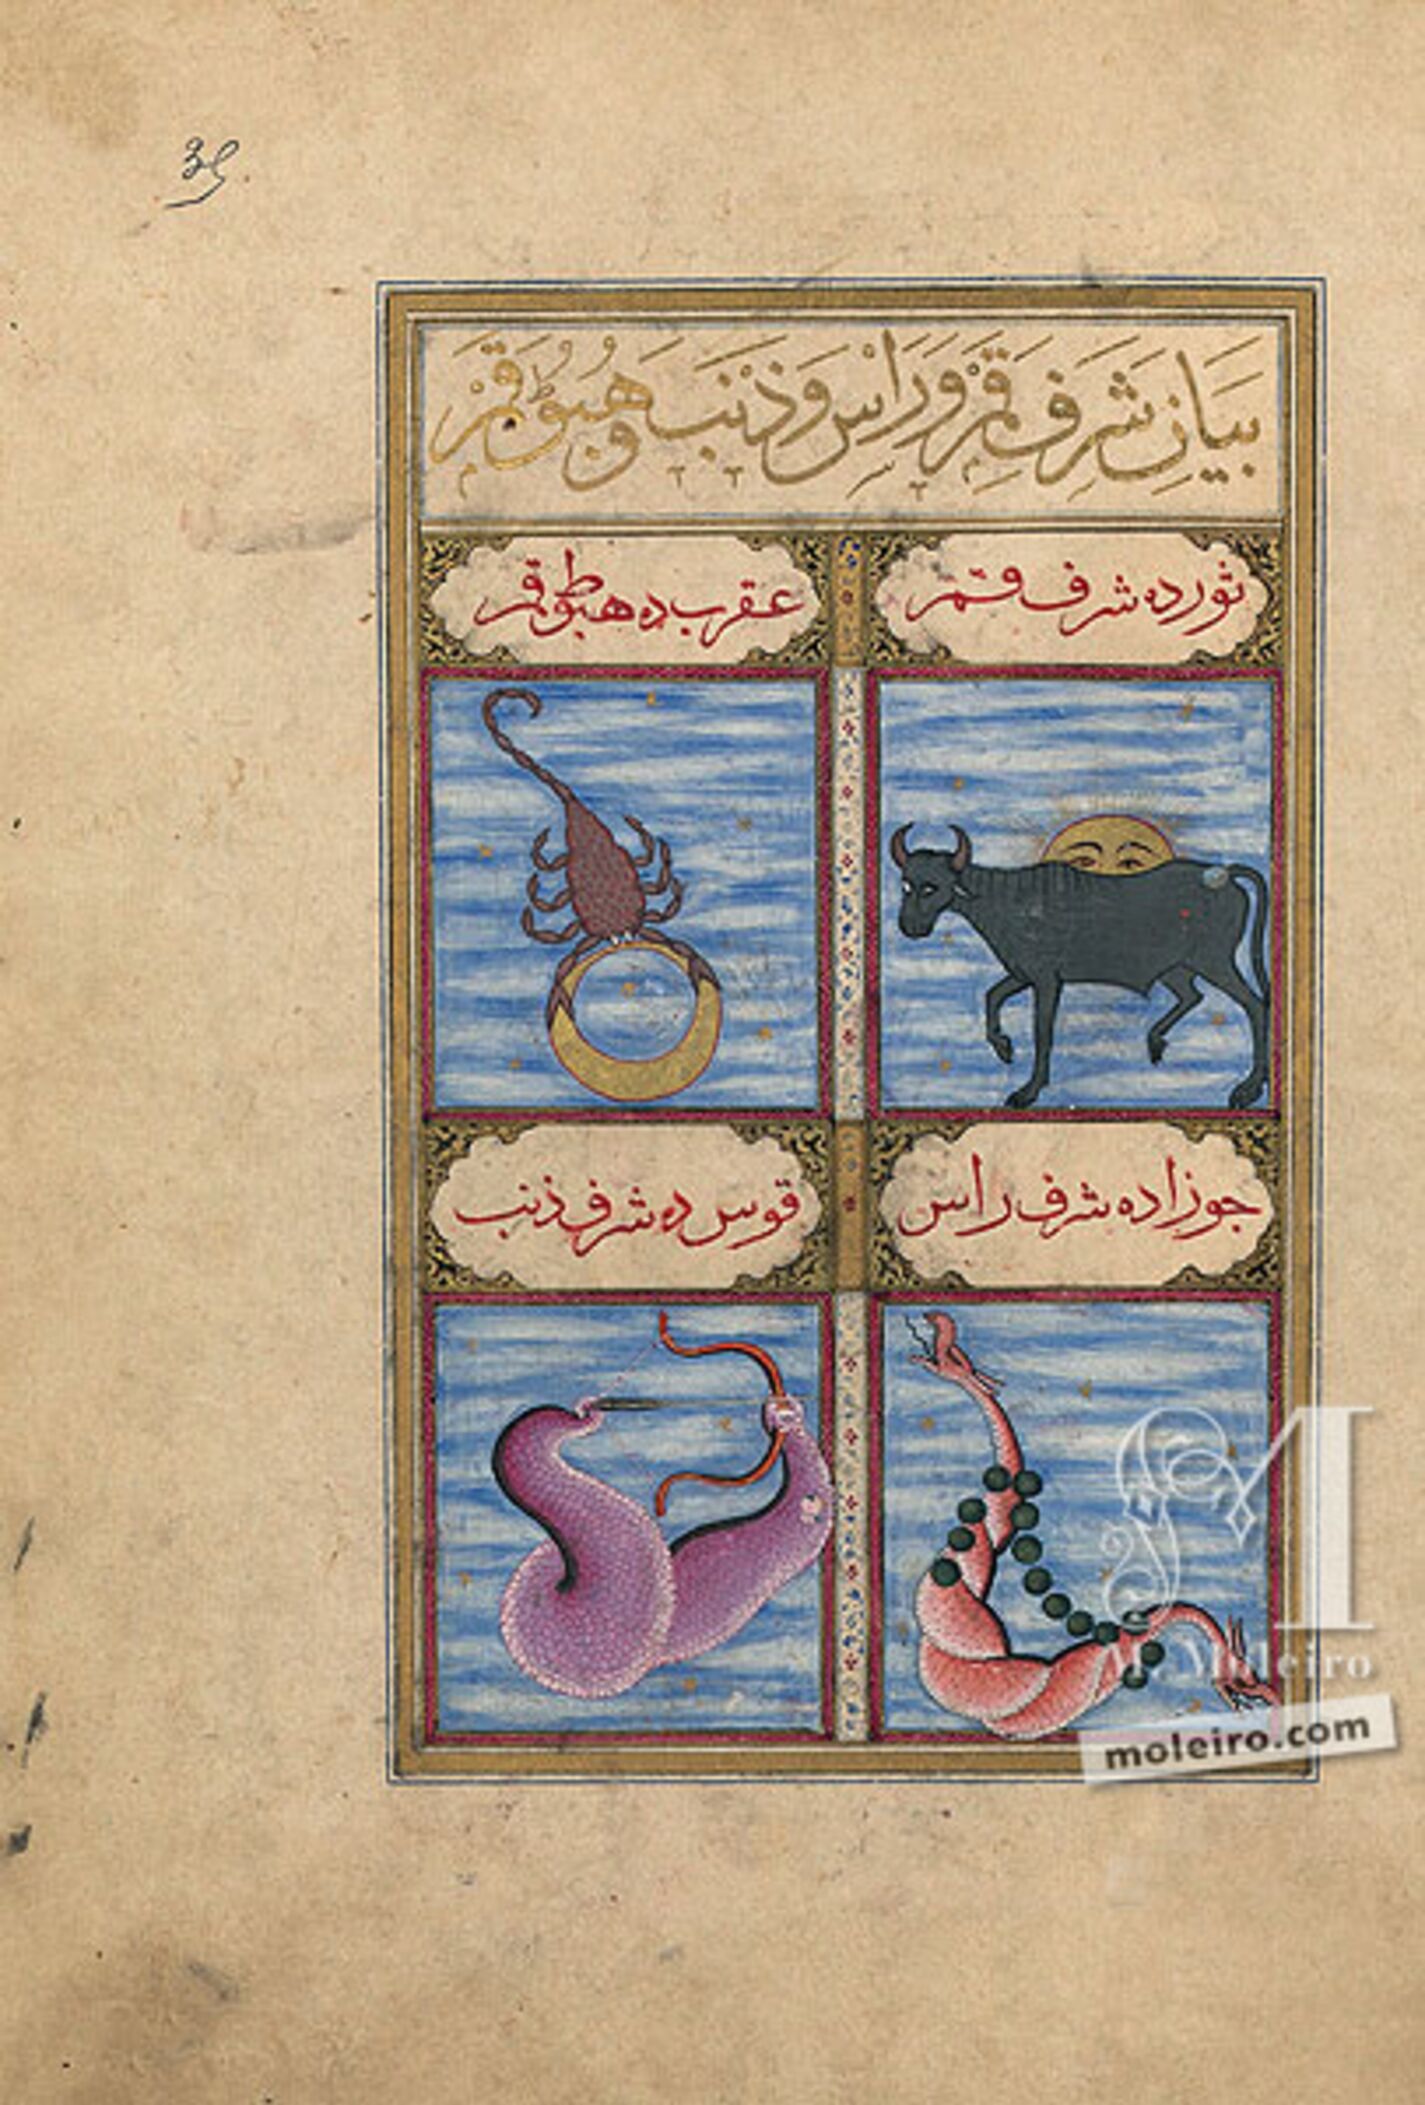 39
بَيَانِ شَرَفِ قَمَرْ وَرَاْسْ وَذَنَبْ وَهُبُوُطِ قَمَرْ
ثورده شرف قمر
عقرب ده هبوط قمر
جوزاده شرف راس
قوس ده شرف ذنب
M
M. Moleiro
moleiro.com